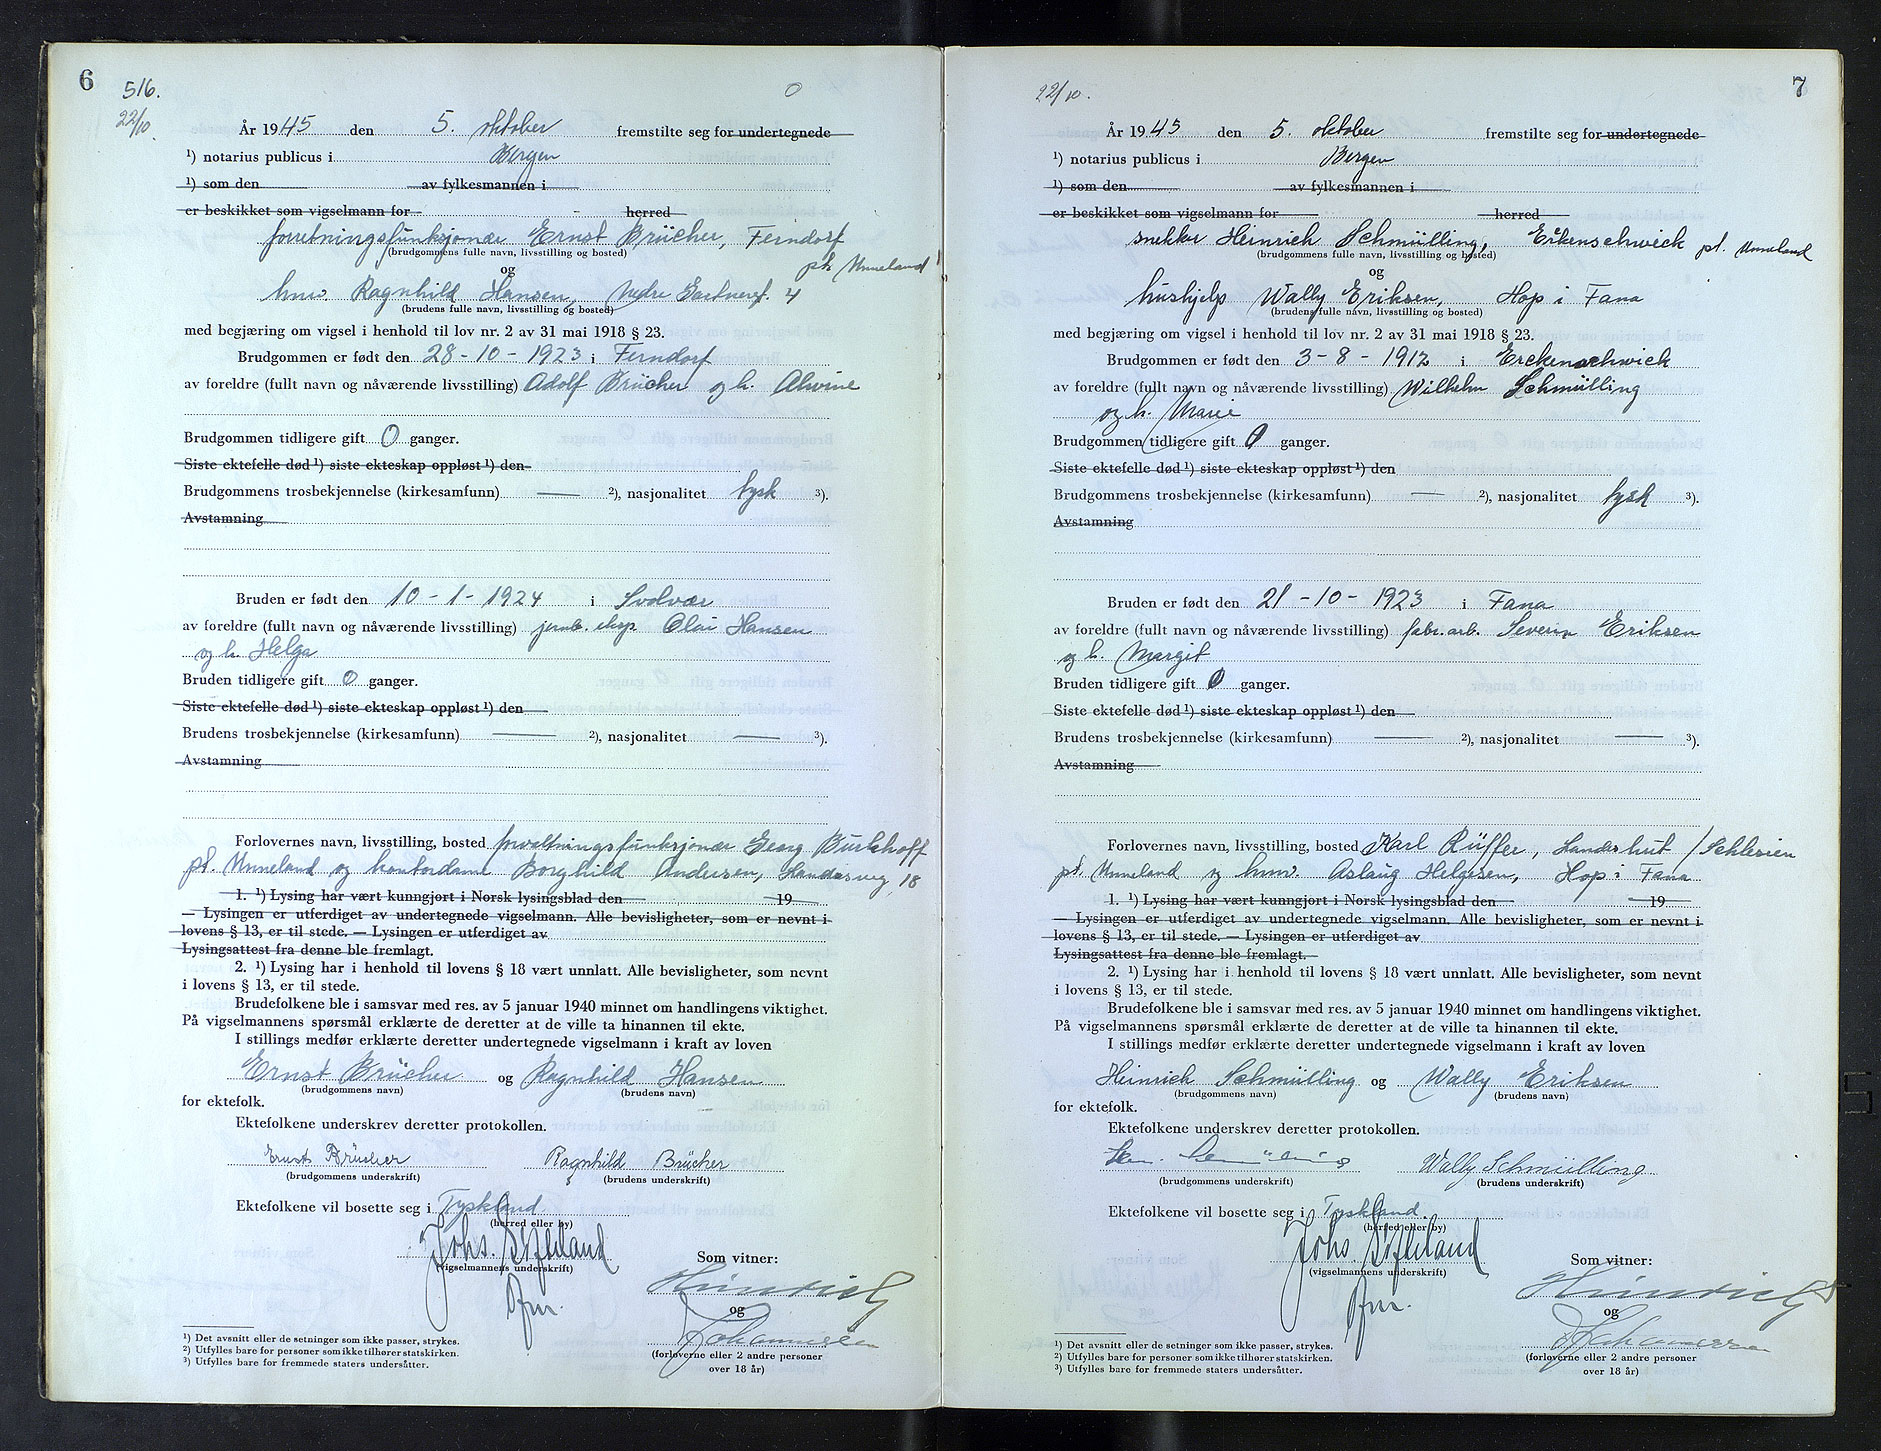 6
516.
22/10.
0
År 1945 den 5. oktober fremstilte seg for undertegnede
¹) notarius publicus i Bergen
¹) som den av fylkesmannen i
er beskikket som vigselmann for - herred
forretningsfunksjonær Ernst Brücher, Ferndorf
(brudgommens fulle navn, livsstilling og bosted)
pt. Unneland
og
hmv. Ragnhild Hansen, Nedre 4
(brudens fulle navn, livsstilling og bosted)
med begjæring om vigsel i henhold til lov nr. 2 av 31 mai 1918 § 23.
Brudgommen er født den 28-10-1923 i Ferndorf
av foreldre (fullt navn og nåværende livsstilling) Adolf Brücher og h. Alwine
Brudgommen tidligere gift 0 ganger.
Siste ektefelle død ¹) siste ekteskap oppløst ¹) den
Brudgommens trosbekjennelse (kirkesamfunn) — ²), nasjonalitet tysk ³).
Avstamning
Bruden er født den 10-1-1924 i Svolvær
av foreldre (fullt navn og nåværende livsstilling) jernb. eksp Olai Hansen
og h. Helga
Bruden tidligere gift 0 ganger.
Siste ektefelle død ¹) siste ekteskap oppløst ¹) den
Brudens trosbekjennelse (kirkesamfunn) — ²), nasjonalitet — ³).
Avstamning
Forlovernes navn, livsstilling, bosted forvaltningsfunksjonær Georg Burkhoff
pt. Unneland og kontordame Borghild Andersen, Landåsveg 18
1. ¹) Lysing har vært kunngjort i Norsk lysingsblad den 19
— Lysingen er utferdiget av undertegnede vigselmann. Alle bevisligheter, som er nevnt i
lovens § 13, er til stede. — Lysingen er utferdiget av
Lysingsattest fra denne ble fremlagt.
2. ¹) Lysing har i henhold til lovens § 18 vært unnlatt. Alle bevisligheter, som nevnt
i lovens § 13, er til stede.
Brudefolkene ble i samsvar med res. av 5 januar 1940 minnet om handlingens viktighet.
På vigselmannens spørsmål erklærte de deretter at de ville ta hinannen til ekte.
I stillings medfør erklærte deretter undertegnede vigselmann i kraft av loven
Ernst Brücher og Ragnhild Hansen
(brudgommens navn) (brudens navn)
for ektefolk.
Ektefolkene underskrev deretter protokollen.
Ernst Brücher Ragnhild Brücher
(brudgommens underskrift) (brudens underskrift)
Ektefolkene vil bosette seg i Tyskland.
(herred eller by)
Johs.
(vigselmannens underskrift)
Som vitner:
og
Johannessen
(forloverne eller 2 andre personer
over 18 år)
¹) Det avsnitt eller de setninger som ikke passer, strykes.
²) Utfylles bare for personer som ikke tilhører statskirken.
³) Utfylles bare for fremmede staters undersåtter.
7
22/10.
År 1945 den 5. oktober fremstilte seg for undertegnede
¹) notarius publicus i Bergen
¹) som den av fylkesmannen i
er beskikket som vigselmann for herred
snekker Heinrich Schmülling, Erkenschwick pt. Unneland
(brudgommens fulle navn, livsstilling og bosted)
og
hushjelp Wally Eriksen, Hop i Fana
(brudens fulle navn, livsstilling og bosted)
med begjæring om vigsel i henhold til lov nr. 2 av 31 mai 1918 § 23.
Brudgommen er født den 3-8-1912 i Erckenschwick
av foreldre (fullt navn og nåværende livsstilling) Wilhelm Schmülling
og h. Marie
Brudgommen tidligere gift 0 ganger.
Siste ektefelle død ¹) siste ekteskap oppløst ¹) den
Brudgommens trosbekjennelse (kirkesamfunn) — ²), nasjonalitet tysk ³).
Avstamning
Bruden er født den 21-10-1923 i Fana
av foreldre (fullt navn og nåværende livsstilling) fabr.arb. Severin Eriksen
og h. Margit
Bruden tidligere gift 0 ganger.
Siste ektefelle død ¹) siste ekteskap oppløst ¹) den
Brudens trosbekjennelse (kirkesamfunn) — ²), nasjonalitet — ³).
Avstamning
Forlovernes navn, livsstilling, bosted Karl Rüffer, Landeshut / Schlesien
pt. Unneland og hmv. Aslaug Helgesen, Hop i Fana
1. ¹) Lysing har vært kunngjort i Norsk lysingsblad den 19
— Lysingen er utferdiget av undertegnede vigselmann. Alle bevisligheter, som er nevnt i
lovens § 13, er til stede. — Lysingen er utferdiget av
Lysingsattest fra denne ble fremlagt.
2. ¹) Lysing har i henhold til lovens § 18 vært unnlatt. Alle bevisligheter, som nevnt
i lovens § 13, er til stede.
Brudefolkene ble i samsvar med res. av 5 januar 1940 minnet om handlingens viktighet.
På vigselmannens spørsmål erklærte de deretter at de ville ta hinannen til ekte.
I stillings medfør erklærte deretter undertegnede vigselmann i kraft av loven
Heinrich Schmülling og Wally Eriksen
(brudgommens navn) (brudens navn)
for ektefolk.
Ektefolkene underskrev deretter protokollen.
Wally Schmülling
(brudgommens underskrift) (brudens underskrift)
Ektefolkene vil bosette seg i Tyskland.
(herred eller by)
Johs.
(vigselmannens underskrift)
Som vitner:
og
Johannessen
(forloverne eller 2 andre personer
over 18 år)
¹) Det avsnitt eller de setninger som ikke passer, strykes.
²) Utfylles bare for personer som ikke tilhører statskirken.
³) Utfylles bare for fremmede staters undersåtter.